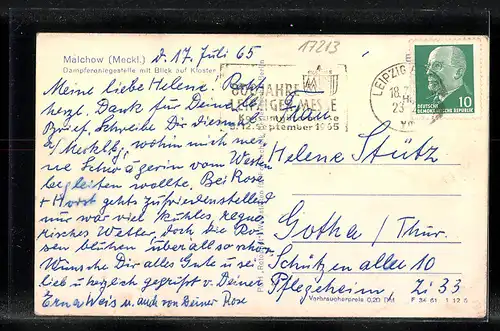 Malchow (Meckl.)
Dampferanlegestelle mit Blick auf Kloster
d. 17. Juli 65
17213
Meine liebe Helene.
herzl. Dank für Deinen l.
Brief. Schreibe Dir diesmal
meine
Schwägerin vom Westen
begleiten wollte. Bei Rose
+ Horst gehts zufriedenstellend
nur war viel kühles, regne-
risches Wetter, doch die Ro-
sen blühen überall so schön
Wünsche Dir alles Gute u. sei
lieb u. herzlich gegrüßt v. Deiner
Erna Weis u. auch von Deiner Rose
800 JAHRE
LEIPZIGER MESSE
Jubiläumsmesse
5.-12. September 1965
LEIPZIG
18.7.
23
DEUTSCHE
DEMOKRATISCHE REPUBLIK
10
Frau
Helene Stütz
Gotha / Thür.
Schützen allee 10
Pflegeheim Zi 33
Verbraucherpreis 0,20 DM